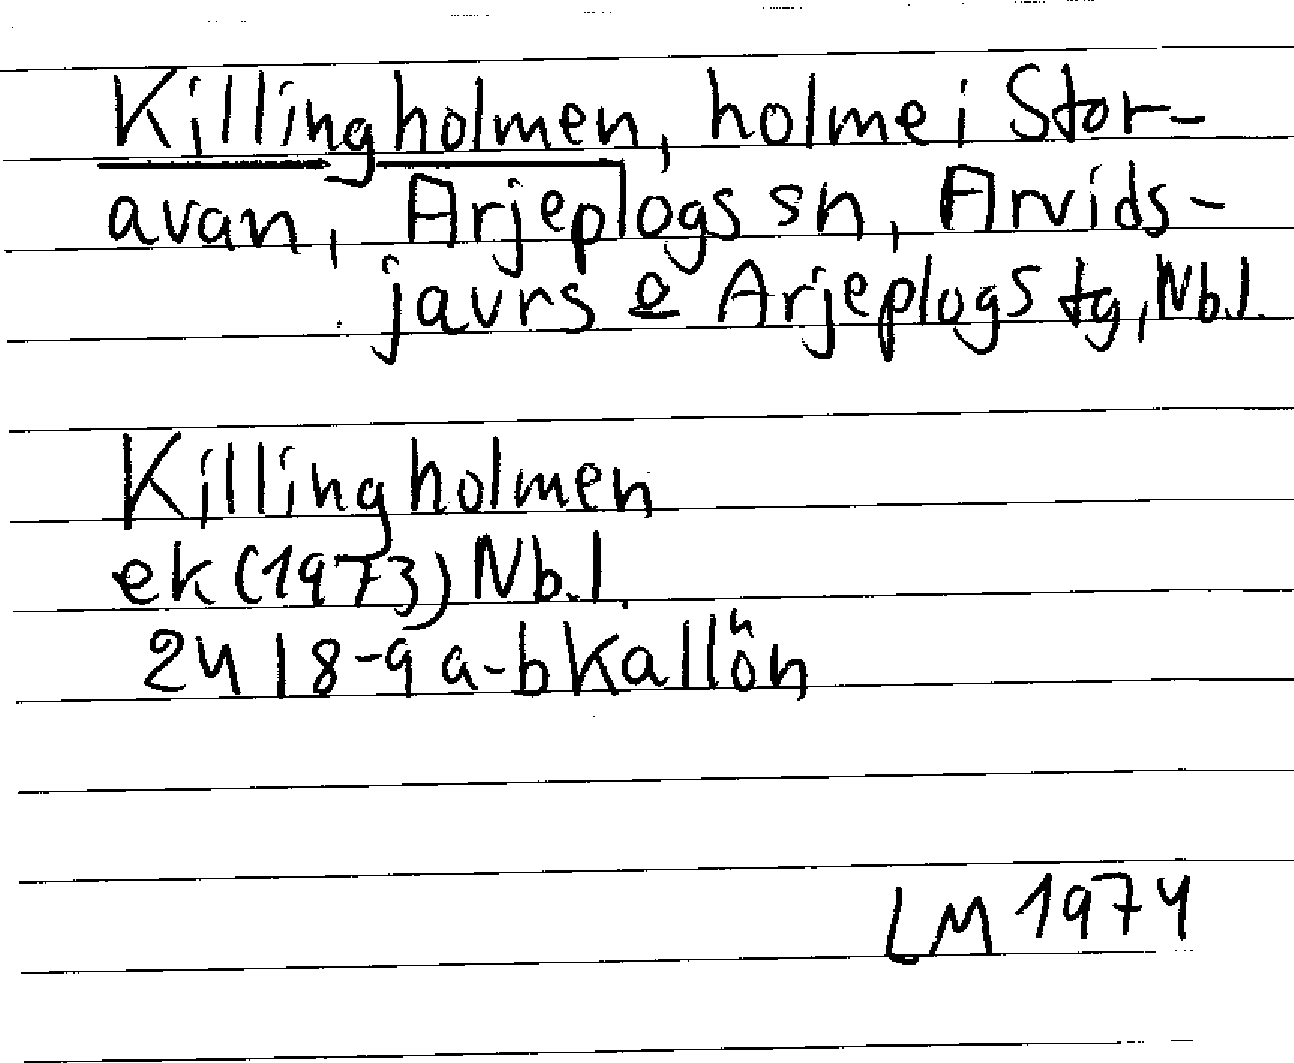 Killingholmen, holme i Stor-
avan, Arjeplogs sn, Arvids-
javrs o Arjeplogs tg, Nb.l.
Killingholmen
ek (1973) Nb.l.
24 I 8-9 a-b Kallön
LM 1974